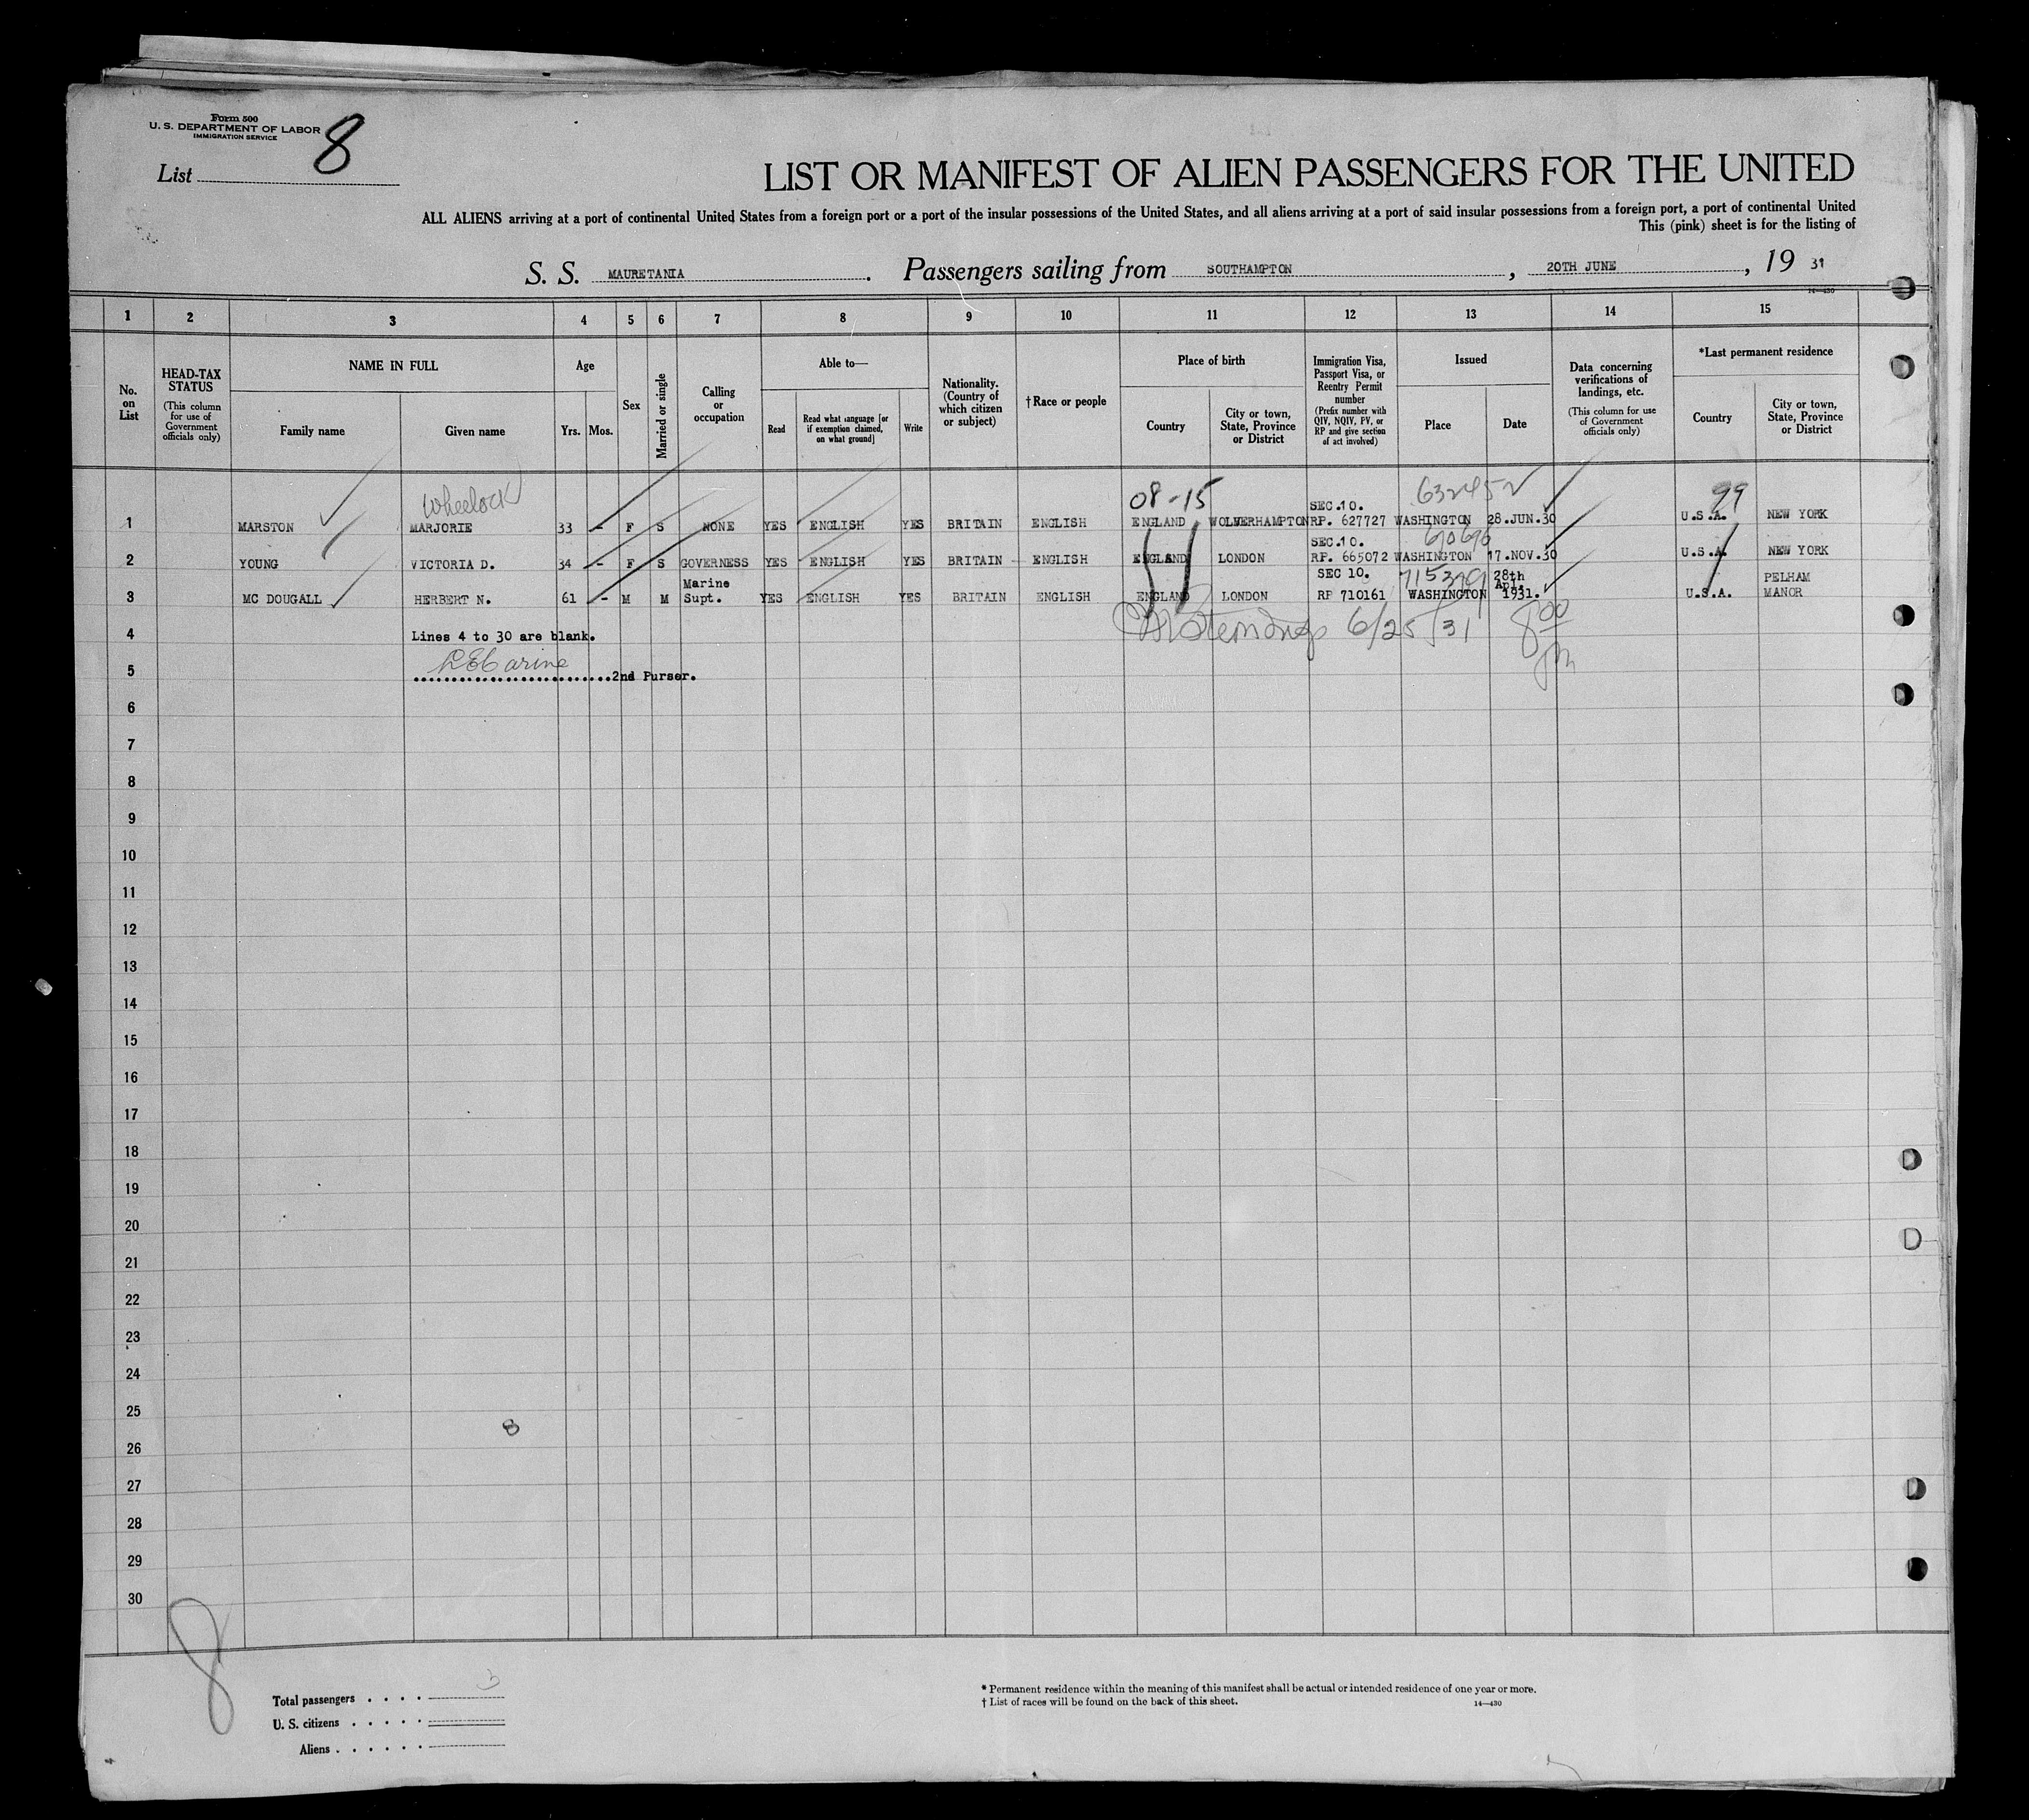 Form 500
U. S. DEPARTMENT OF LABOR
IMMIGRATION SERVICE
List 8
LIST OR MANIFEST OF ALIEN PASSENGERS FOR THE UNITED
ALL ALIENS arriving at a port of continental United States from a foreign port or a port of the insular possessions of the United States, and all aliens arriving at a port of said insular possessions from a foreign port, a port of continental United
This (pink) sheet is for the listing of
S. S. MAURETANIA . Passengers sailing from SOUTHAMPTON , 20TH JUNE , 19 31
14—430
1 2 3 4 5 6 7 8 9 10 11 12 13 14 15
No. on List
HEAD-TAX STATUS (This column for use of Government officials only)
NAME IN FULL
Family name
Given name
Age
Yrs. Mos.
Sex
Married or single
Calling or occupation
Able to—
Read
Read what language [or if exemption claimed, on what ground]
Write
Nationality. (Country of which citizen or subject)
†Race or people
Place of birth
Country
City or town, State, Province or District
Immigration Visa, Passport Visa, or Reentry Permit number (Prefix number with QIV, NQIV, PV, or RP and give section of act involved)
Issued
Place
Date
Data concerning verifications of landings, etc. (This column for use of Government officials only)
*Last permanent residence
Country
City or town, State, Province or District
Wheelock 08-15 SEC.10. 632452 99
1 MARSTON MARJORIE 33 - F S NONE YES ENGLISH YES BRITAIN ENGLISH ENGLAND WOLVERHAMPTON RP. 627727 WASHINGTON 28.JUN.30 U.S.A. NEW YORK
SEC.10. 670676
2 YOUNG VICTORIA D. 34 - F S GOVERNESS YES ENGLISH YES BRITAIN ENGLISH ENGLAND LONDON RP. 665072 WASHINGTON 17.NOV.30 U.S.A. NEW YORK
Marine SEC 10. 715379 28th Apl. PELHAM
3 MC DOUGALL HERBERT N. 61 - M M Supt. YES ENGLISH YES BRITAIN ENGLISH ENGLAND LONDON RP 710161 WASHINGTON 1931. U.S.A. MANOR
4 Lines 4 to 30 are blank. 6/25/31 8 00
5 ..........................2nd Purser.
6
7
8
9
10
11
12
13
14
15
16
17
18
19
20
21
22
23
24
25
8
26
27
28
29
30
8
Total passengers . . . . 3
U. S. citizens . . . . .
Aliens . . . . . .
* Permanent residence within the meaning of this manifest shall be actual or intended residence of one year or more.
† List of races will be found on the back of this sheet.
14—430